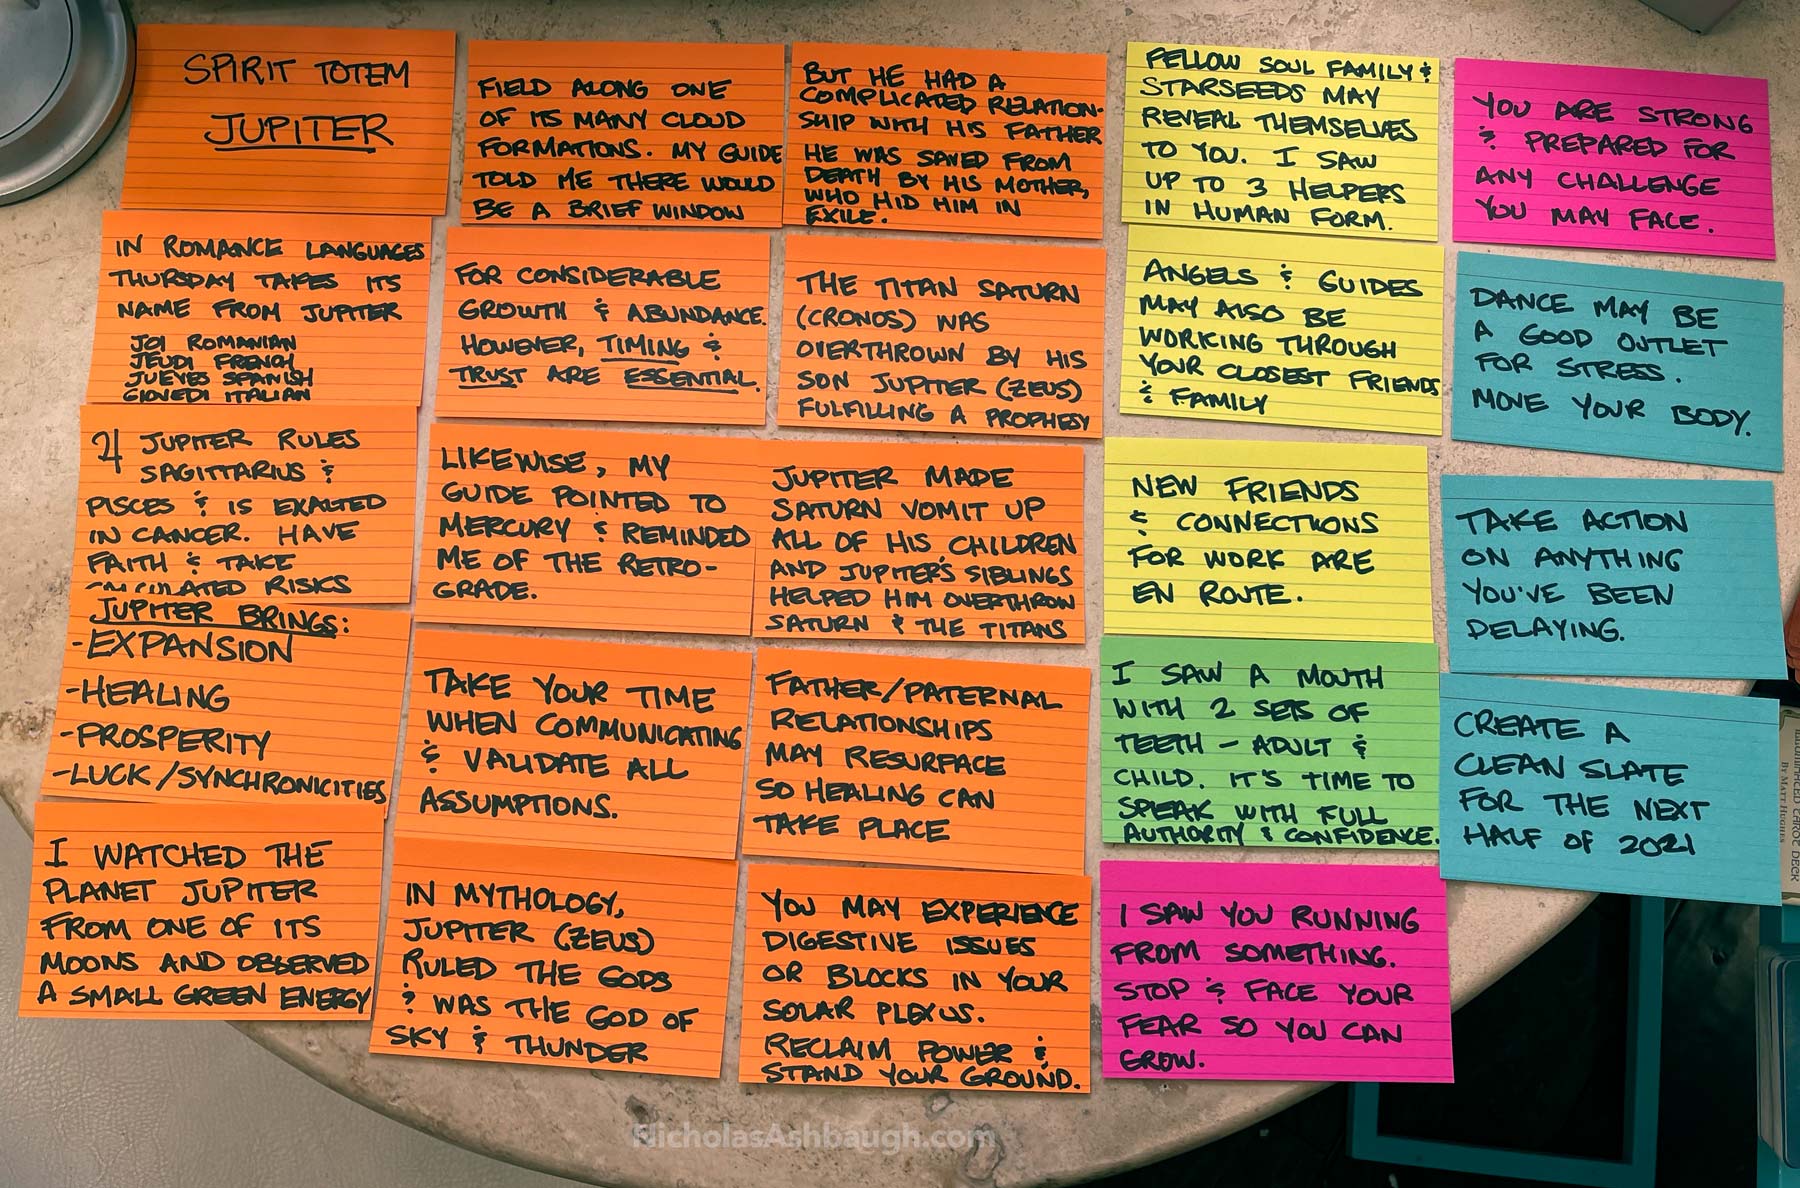 SPIRIT TOTEM
JUPITER
IN ROMANCE LANGUAGES
THURSDAY TAKES ITS
NAME FROM JUPITER
JOI ROMANIAN
JEUDI FRENCH
JUEVES SPANISH
GIOVEDI ITALIAN
♃ JUPITER RULES
SAGITTARIUS &
PISCES & IS EXALTED
IN CANCER. HAVE
FAITH & TAKE
CALCULATED RISKS
JUPITER BRINGS:
-EXPANSION
-HEALING
-PROSPERITY
-LUCK/SYNCHRONICITIES
I WATCHED THE
PLANET JUPITER
FROM ONE OF ITS
MOONS AND OBSERVED
A SMALL GREEN ENERGY
FIELD ALONG ONE
OF ITS MANY CLOUD
FORMATIONS. MY GUIDE
TOLD ME THERE WOULD
BE A BRIEF WINDOW
FOR CONSIDERABLE
GROWTH & ABUNDANCE.
HOWEVER, TIMING &
TRUST ARE ESSENTIAL.
LIKEWISE, MY
GUIDE POINTED TO
MERCURY & REMINDED
ME OF THE RETRO-
GRADE.
TAKE YOUR TIME
WHEN COMMUNICATING
& VALIDATE ALL
ASSUMPTIONS.
IN MYTHOLOGY,
JUPITER (ZEUS)
RULED THE GODS
& WAS THE GOD OF
SKY & THUNDER
BUT HE HAD A
COMPLICATED RELATION-
SHIP WITH HIS FATHER
HE WAS SAVED FROM
DEATH BY HIS MOTHER,
WHO HID HIM IN
EXILE.
THE TITAN SATURN
(CRONOS) WAS
OVERTHROWN BY HIS
SON JUPITER (ZEUS)
FULFILLING A PROPHESY
JUPITER MADE
SATURN VOMIT UP
ALL OF HIS CHILDREN
AND JUPITER'S SIBLINGS
HELPED HIM OVERTHROW
SATURN & THE TITANS
FATHER/PATERNAL
RELATIONSHIPS
MAY RESURFACE
SO HEALING CAN
TAKE PLACE
YOU MAY EXPERIENCE
DIGESTIVE ISSUES
OR BLOCKS IN YOUR
SOLAR PLEXUS.
RECLAIM POWER &
STAND YOUR GROUND.
FELLOW SOUL FAMILY &
STARSEEDS MAY
REVEAL THEMSELVES
TO YOU. I SAW
UP TO 3 HELPERS
IN HUMAN FORM.
ANGELS & GUIDES
MAY ALSO BE
WORKING THROUGH
YOUR CLOSEST FRIENDS
& FAMILY
NEW FRIENDS
& CONNECTIONS
FOR WORK ARE
EN ROUTE.
I SAW A MOUTH
WITH 2 SETS OF
TEETH - ADULT &
CHILD. IT'S TIME TO
SPEAK WITH FULL
AUTHORITY & CONFIDENCE.
I SAW YOU RUNNING
FROM SOMETHING.
STOP & FACE YOUR
FEAR SO YOU CAN
GROW.
YOU ARE STRONG
& PREPARED FOR
ANY CHALLENGE
YOU MAY FACE.
DANCE MAY BE
A GOOD OUTLET
FOR STRESS.
MOVE YOUR BODY.
TAKE ACTION
ON ANYTHING
YOU'VE BEEN
DELAYING.
CREATE A
CLEAN SLATE
FOR THE NEXT
HALF OF 2021
TAROT DECK
BY MATT HUGHES
NicholasAshbaugh.com